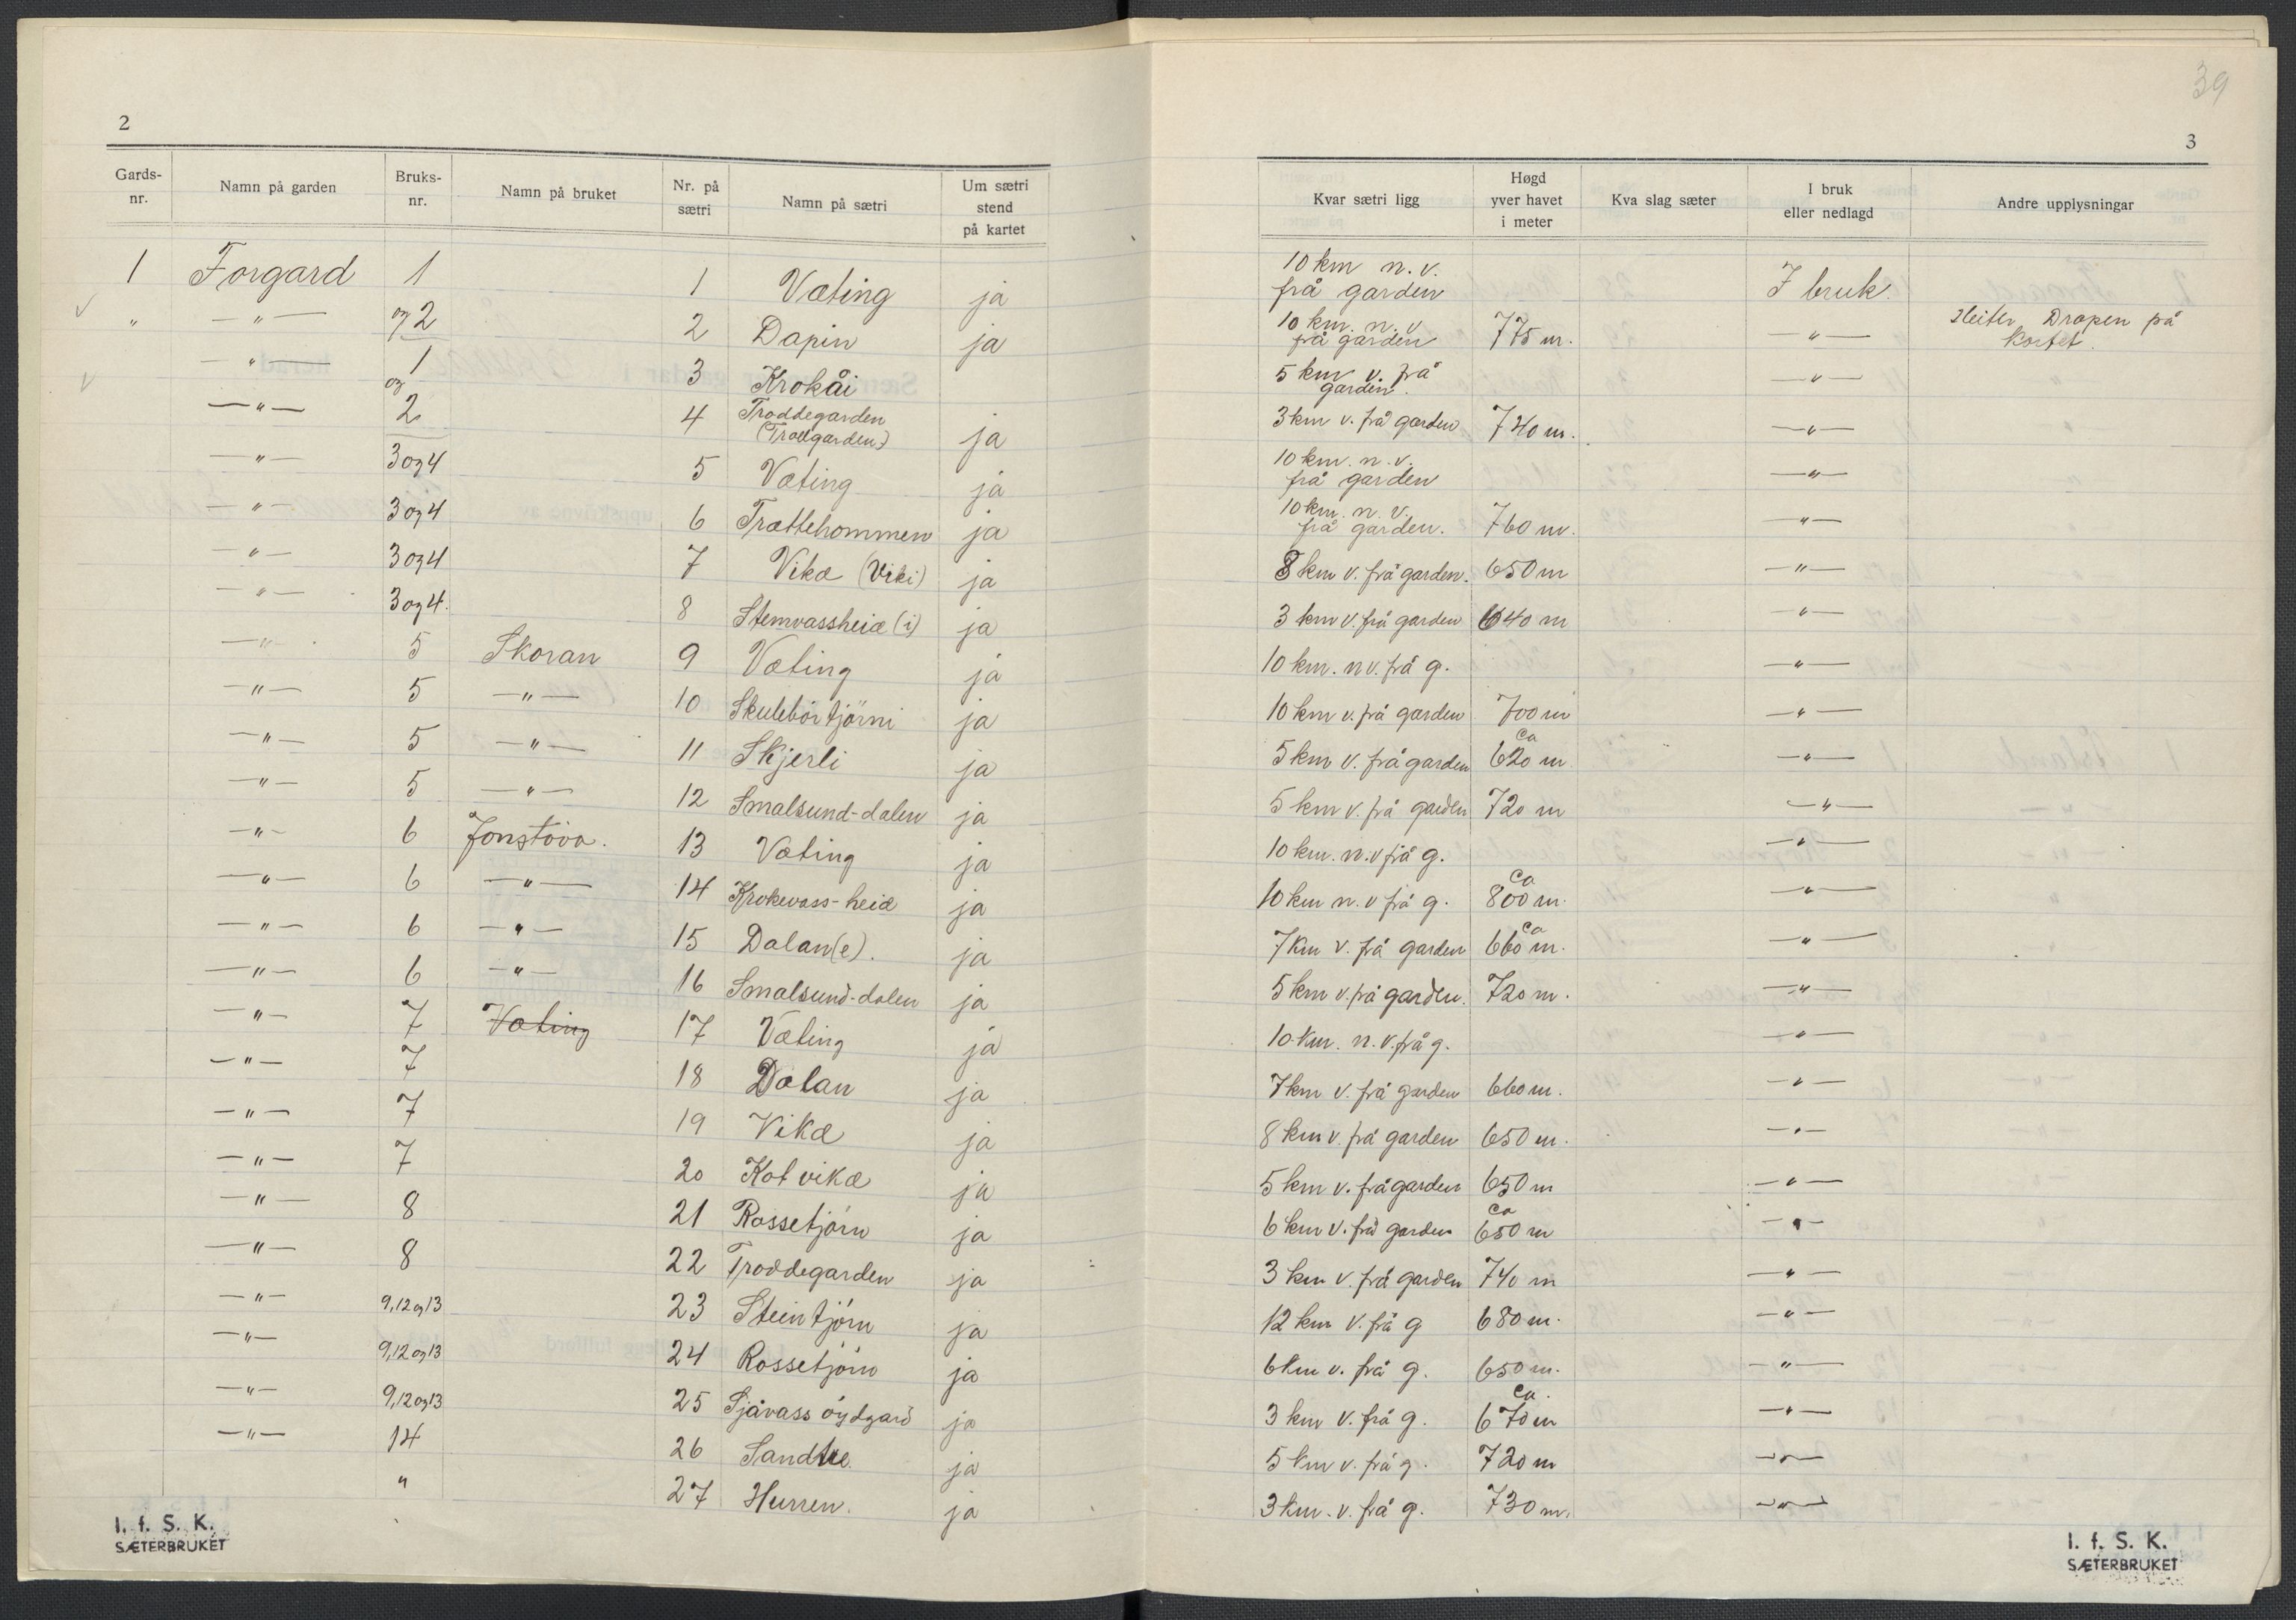 2
Gards-nr. Namn på garden Bruks-nr. Namn på bruket Nr. på sætri Namn på sætri Um sætri stend på kartet
1 Forgard 1 1 Væting ja
" —"— og 2 2 Dapin ja
—"— 1 3 Krokåi
—"— og 2 4 Troddegarden (Trollgarden) ja
—"— 3 og 4 5 Væting ja
—"— 3 og 4 6 Trættehommen ja
—"— 3 og 4 7 Vikæ (Viki) ja
—"— 3 og 4. 8 Stemvassheiæ (i) ja
—"— 5 Skoran 9 Væting ja
—"— 5 —"— 10 Skulebörtjörni ja
—"— 5 —"— 11 Skjerli ja
—"— 5 —"— 12 Smalsund-dalen ja
—"— 6 Jonstova. 13 Væting ja
—"— 6 —"— 14 Krokevass-heiæ ja
—"— 6 —"— 15 Dalan(e). ja
—"— 6 —"— 16 Smalsund-dalen ja
—"— 7 Væting 17 Væting ja
—"— 7 18 Dalan ja
—"— 7 19 Vikæ ja
—"— 7 20 Kotvikæ ja
—"— 8 21 Rossetjörn ja
—"— 8 22 Troddegarden ja
—"— 9,12 og 13 23 Steintjörn ja
—"— 9,12 og 13 24 Rossetjörn ja
—"— 9,12 og 13 25 Sjåvass öydgard ja
—"— 14 26 ja
" 27 Hurren. ja
I. f. S. K.
SÆTERBRUKET
39
3
Kvar sætri ligg Høgd yver havet i meter Kva slag sæter I bruk eller nedlagd Andre upplysningar
10 km n. v. frå garden I bruk.
10 km. n. v frå garden 775 m. —"— Heiter Drapen på kortet.
5 km v. frå garden. —"—
3 km v. frå garden 740 m. —"—
10 km. n. v. frå garden —"—
10 km. n. v. frå garden. 760 m. —"—
8 km v. frå garden. 650 m —"—
3 km v. frå garden 640 m —"—
10 km. n v. frå g. —"—
10 km v. frå garden 700 m —"—
5 km v. frå garden ca 620 m —"—
5 km v. frå garden 720 m —"—
10 km. n. v frå g. —"—
10 km n. v frå g. ca 800 m. —"—
7 km v. frå garden ca 660 m. —"—
5 km v. frå garden. 720 m. —"—
10 km. n. v. frå g. —"—
7 km v. frå garden 660 m. —"—
8 km v. frå garden 650 m. —"—
5 km v. frå garden 650 m —"—
6 km v. frå garden ca 650 m —"—
3 km v. frå garden 740 m —"—
12 km v. frå g 680 m. —"—
6 km v. frå g. 650 m. —"—
3 km v. frå g. ca. 670 m —"—
5 km v. frå g. 720 m —"—
3 km. v. frå g. 730 m. —"—
I. f. S. K.
SÆTERBRUKET